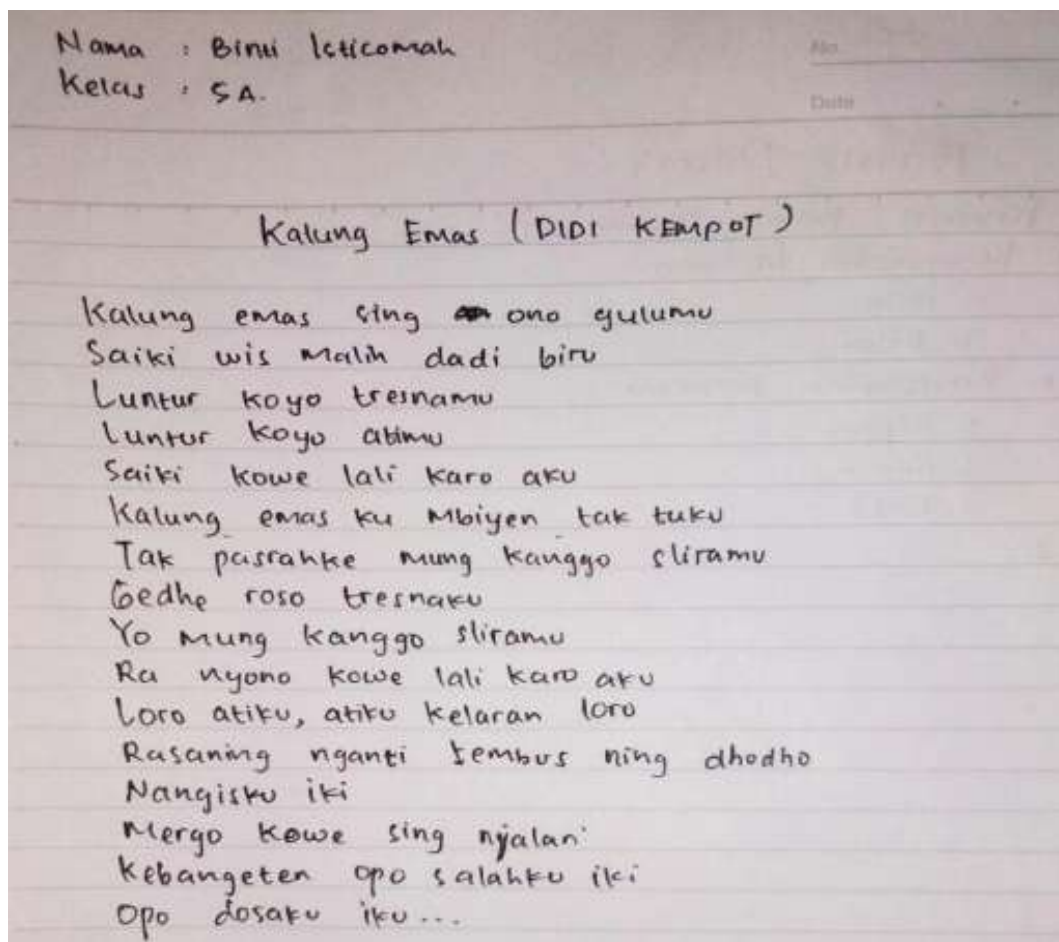 Nama : Binti Isticomah
No.
Kelas : 5A.
Date
Kalung Emas (DIDI KEMPOT)
Kalung emas sing ono gulumu
Saiki wis malih dadi biru
Luntur koyo tresnamu
Luntur koyo atimu
Saiki kowe lali karo aku
Kalung emas ku Mbiyen tak tuku
Tak pasrahke mung kanggo sliramu
Gedhe roso tresnaku
Yo mung kanggo sliramu
Ra nyono kowe lali karo aku
Loro atiku, atiku kelaran loro
Rasaning nganti tembus ning dhodho
Nangisku iki
Mergo kowe sing njalari
Kebangeten opo salahku iki
Opo dosaku iku...